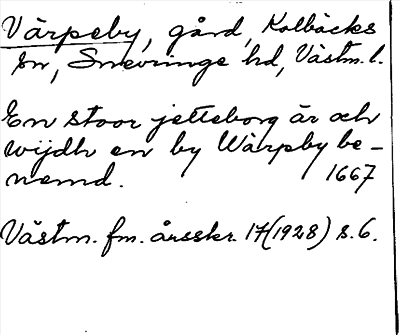 Värpeby, gård, Kolbäcks
sn, Snevringe hd, Västm. l.
En stoor jetteborg är och
wijdh en by Wärpby be-
nemd. 1667
Västm. fm. årsskr. 17 (1928) s. 6.